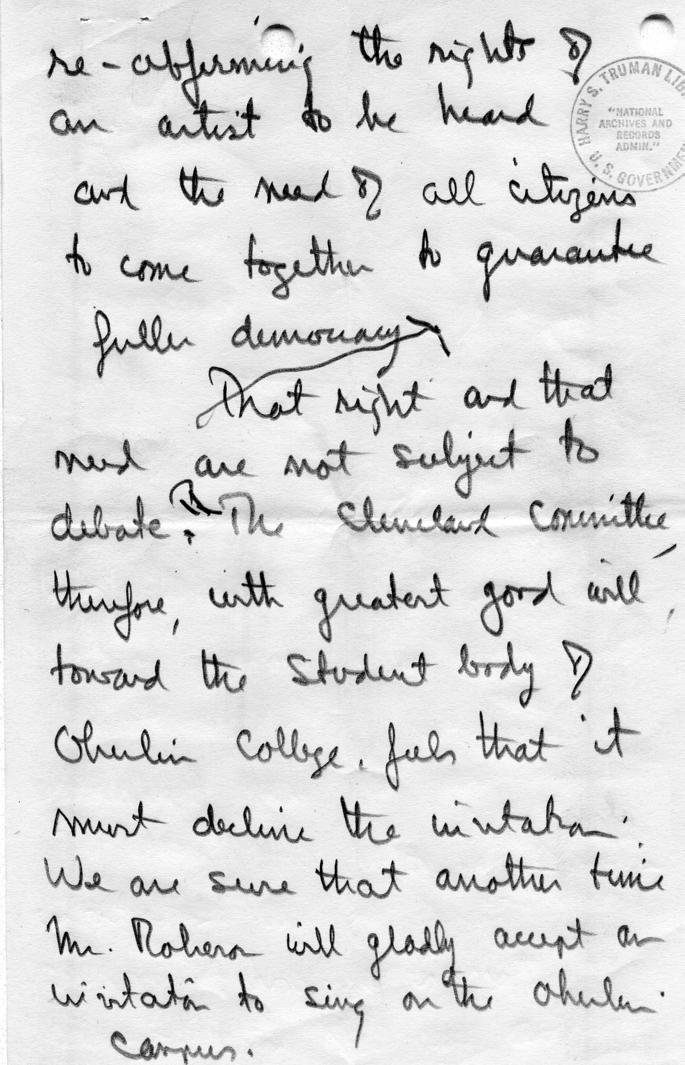 re-affirming the rights of
an artist to be heard
and the need of all citizens
to come together to guarantee
fuller democracy
That right and that
need are not subject to
debate. The Cleveland Committee,
therefore, with greatest good will,
toward the Student body of
Oberlin College, feels that it
must decline the invitation.
We are sure that another time
Mr. Robeson will gladly accept an
invitation to sing on the Oberlin
Campus.
HARRY S. TRUMAN LIB
"NATIONAL
ARCHIVES AND
RECORDS
ADMIN."
U. S. GOVERNMEN